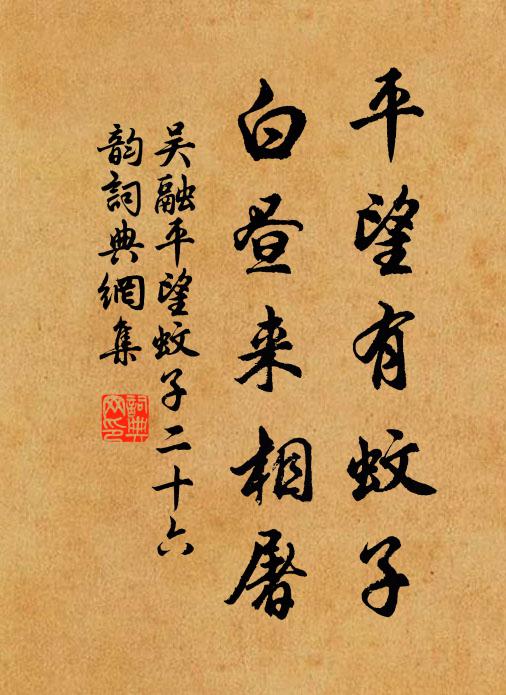 平望有蚊子
白昼来相屠
吴融平望蚊子二十六
韵詞典網集
詞典
网印